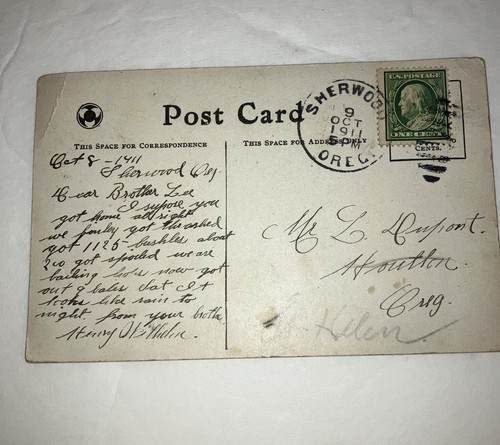 Post Card
THIS SPACE FOR CORRESPONDENCE
THIS SPACE FOR ADDRESS ONLY
SHERWOOD
9
OCT
1911
5 PM
OREG.
U.S. POSTAGE
ONE CENT
CENTS.
Oct 8 - 1911
Sherwood Oreg
Dear Brother Lee
I supose you
got home all right
we got thrashed
got 1125 bushles about
200 got spoiled we are
bailing now got
out
looks like rain to
night. from your brothe
Henry
Mr L. Dupont.
Houlton.
Oreg.
Helen